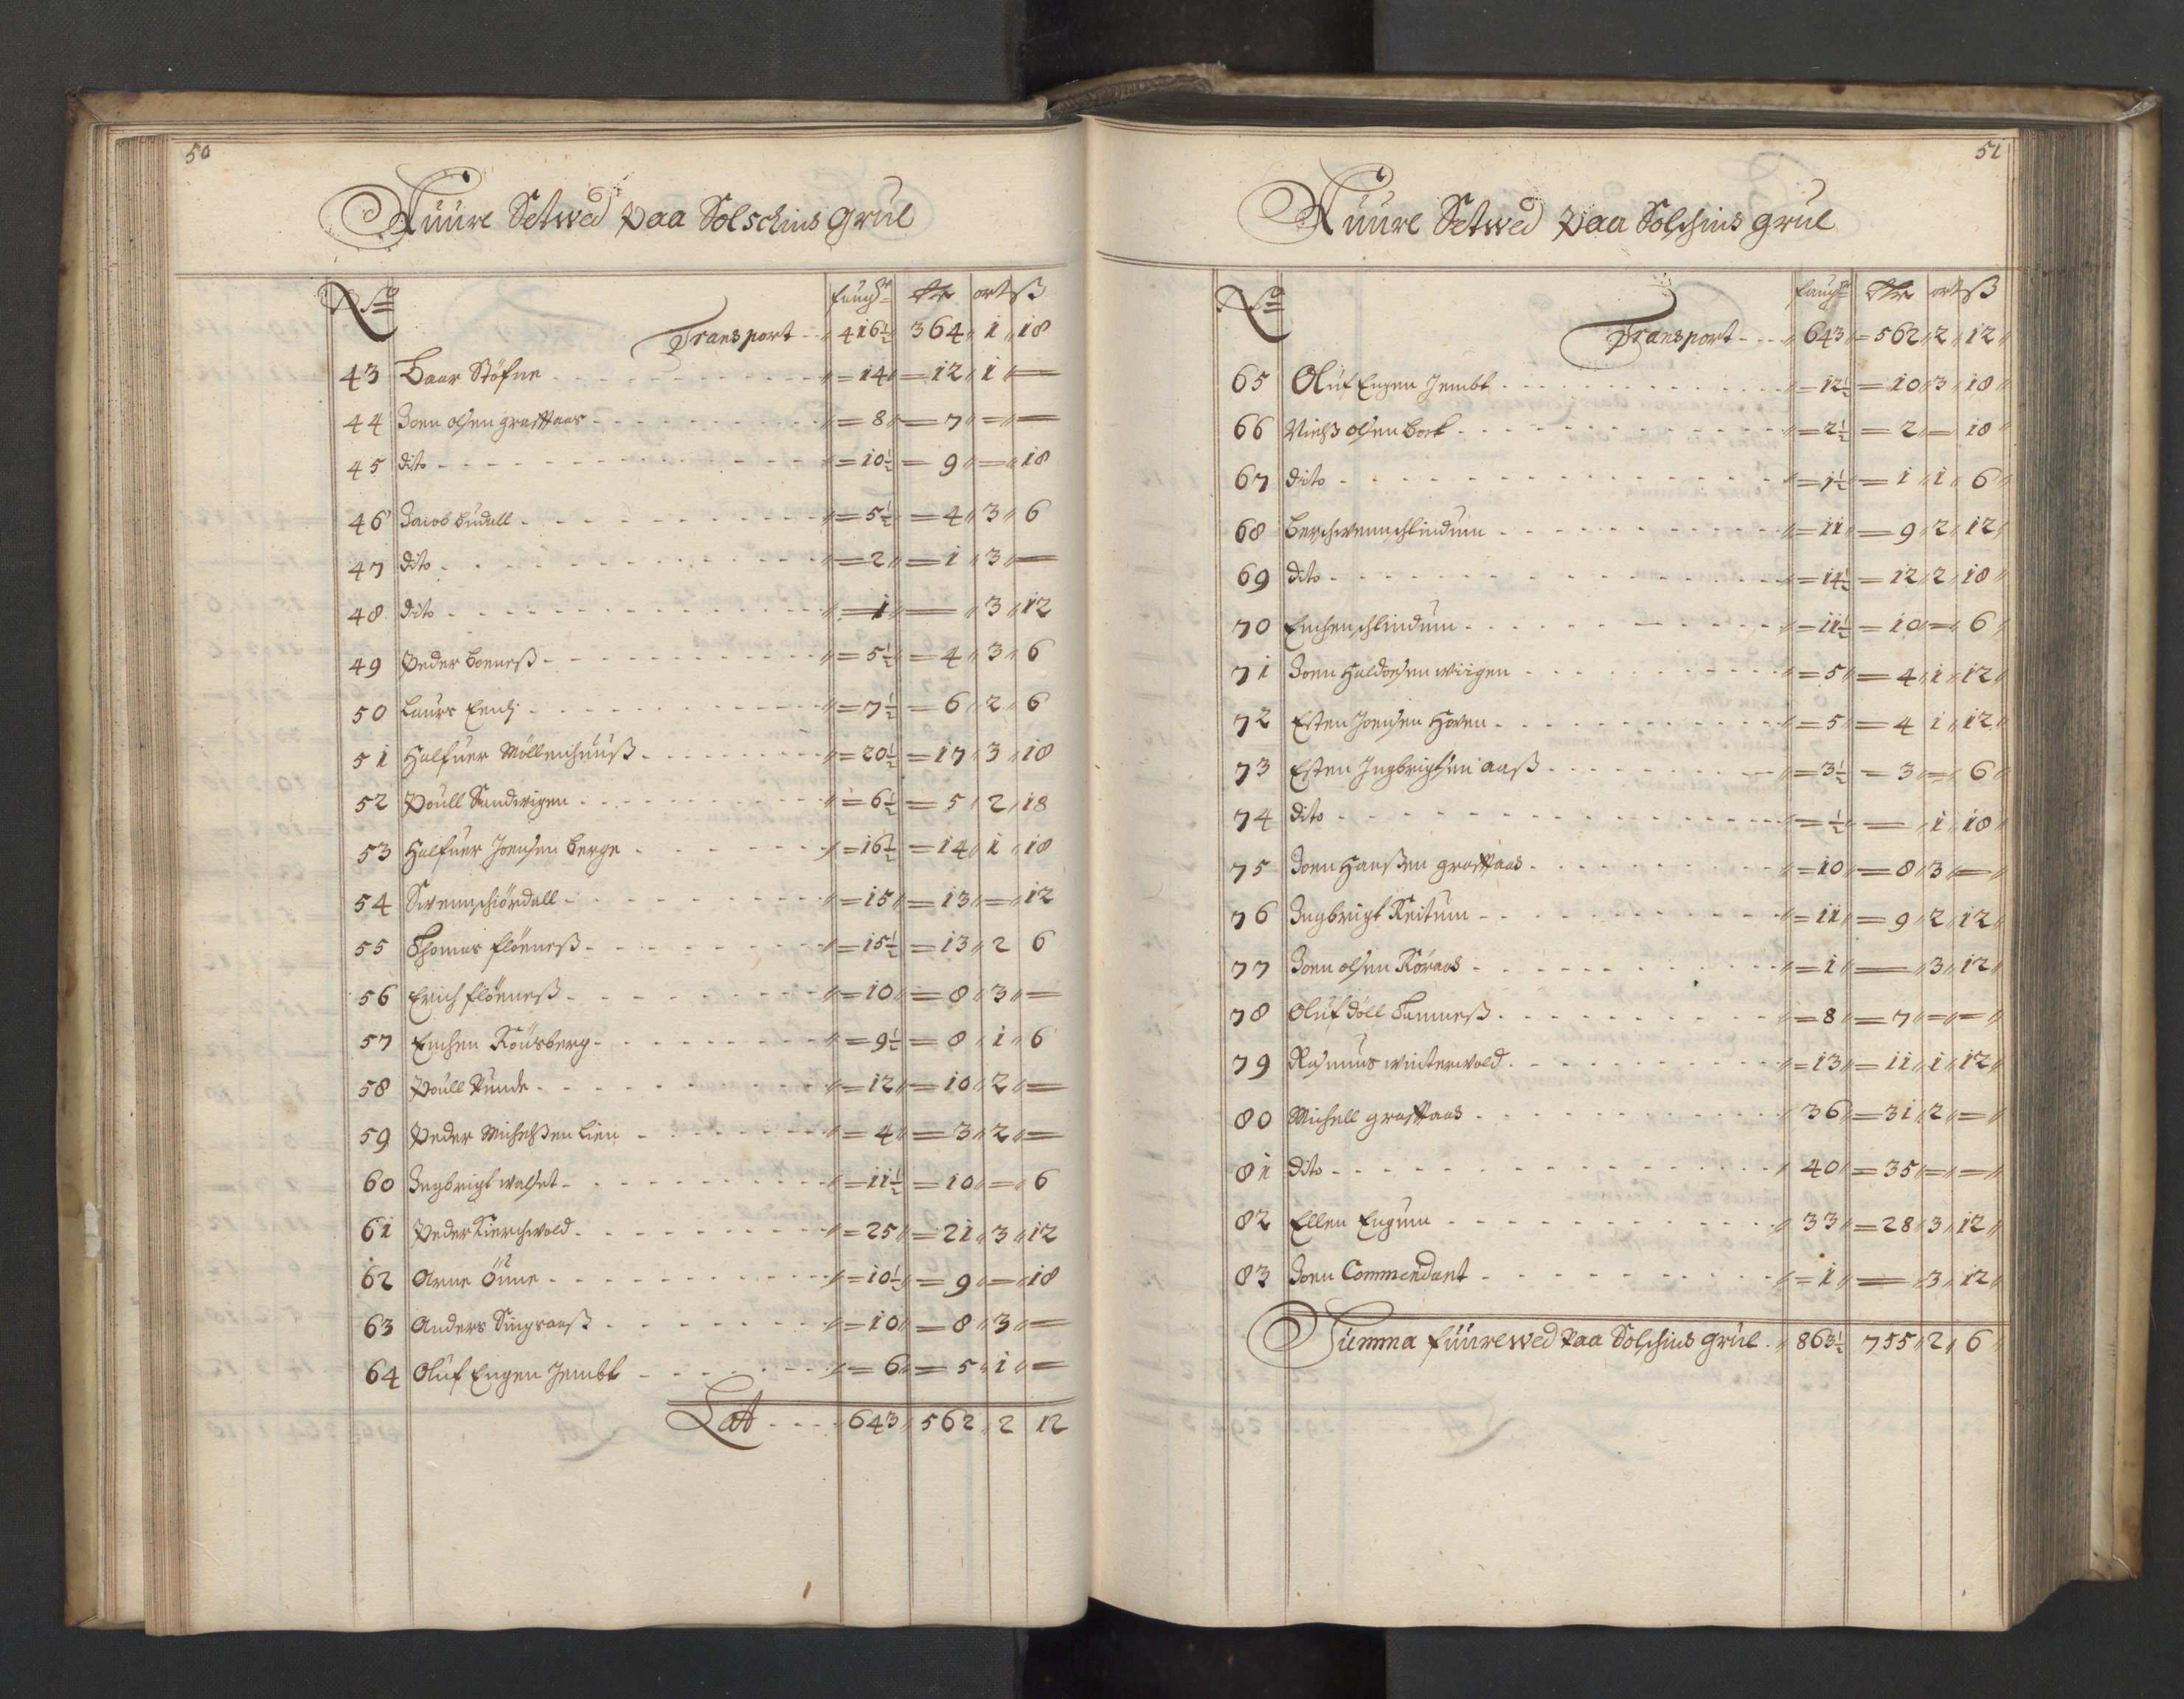 50
Fuure Setwed paa Solschins grul
No faugr Rdr ort ß
Transport - 416½ 364 1 18
43 Baar Stöfne = 14 = 12 1 =
44 Joen olsen graffaas = 8 = 7 = =
45 dito = 10½ = 9 = 18
46 Jacob Budall = 5½ = 4 3 6
47 dito = 2 = 1 3 =
48 dito = 1 = 3 12
49 Peder Boeneß = 5½ = 4 3 6
50 Laurs = 7½ = 6 2 6
51 Halfuer Möllenhuuß = 20½ = 17 3 18
52 Poull Sandwigen = 6½ = 5 2 18
53 Halfuer Joensen Berge = 16½ = 14 1 18
54 Swennschiördall = 15 = 13 = 12
55 Thomas flöeneß = 15½ = 13 2 6
56 Erich flöeneß = 10 = 8 3 =
57 Enchen Röusberg = 9½ = 8 1 6
58 Poull Lunde = 12 = 10 2 =
59 Peder Michelßen Lien = 4 = 3 2 =
60 Ingbrigt walset = 11½ = 10 = 6
61 Peder Kierchwold = 25 = 21 3 12
62 Arne Öune = 10½ = 9 = 18
63 Anders Singsaaß = 10 = 8 3 =
64 Oluf Engen Jembt = 6 = 5 1 =
Lat 643 562 2 12
51
Fuure Setwed paa Solschins grul
No faugr Rdr ort ß
Transport - 643 = 562 2 12
65 Oluf Engen Jembt = 12½ = 10 3 18
66 Nielß olsen Bort = 2½ = 2 = 18
67 dito = 1½ = 1 1 6
68 Berschwennschlindum = 11 = 9 2 12
69 dito = 14½ = 12 2 18
70 Enchenschlindum = 11½ = 10 = 6
71 Joen Haldorsen Wiigen = 5 = 4 1 12
72 Esten Joensen Hoven = 5 = 4 1 12
73 Esten Ingbrigtsen aaß = 3½ = 3 = 6
74 dito = ½ = 1 18
75 Joen Hanßen graffaas = 10 = 8 3 =
76 Ingbrigt Reitum = 11 = 9 2 12
77 Joen olsen Röraas = 1 = 3 12
78 Oluf döll Tamneß = 8 = 7 = =
79 Rasmus winterwold = 13 = 11 1 12
80 Michell graffaas 36 = 31 2 =
81 dito 40 = 35 = =
82 Ellen Engum 33 = 28 3 12
83 Joen Commendant = 1 = 3 12
Summa fuurewed paa Solschins grul 863½ 755 2 6